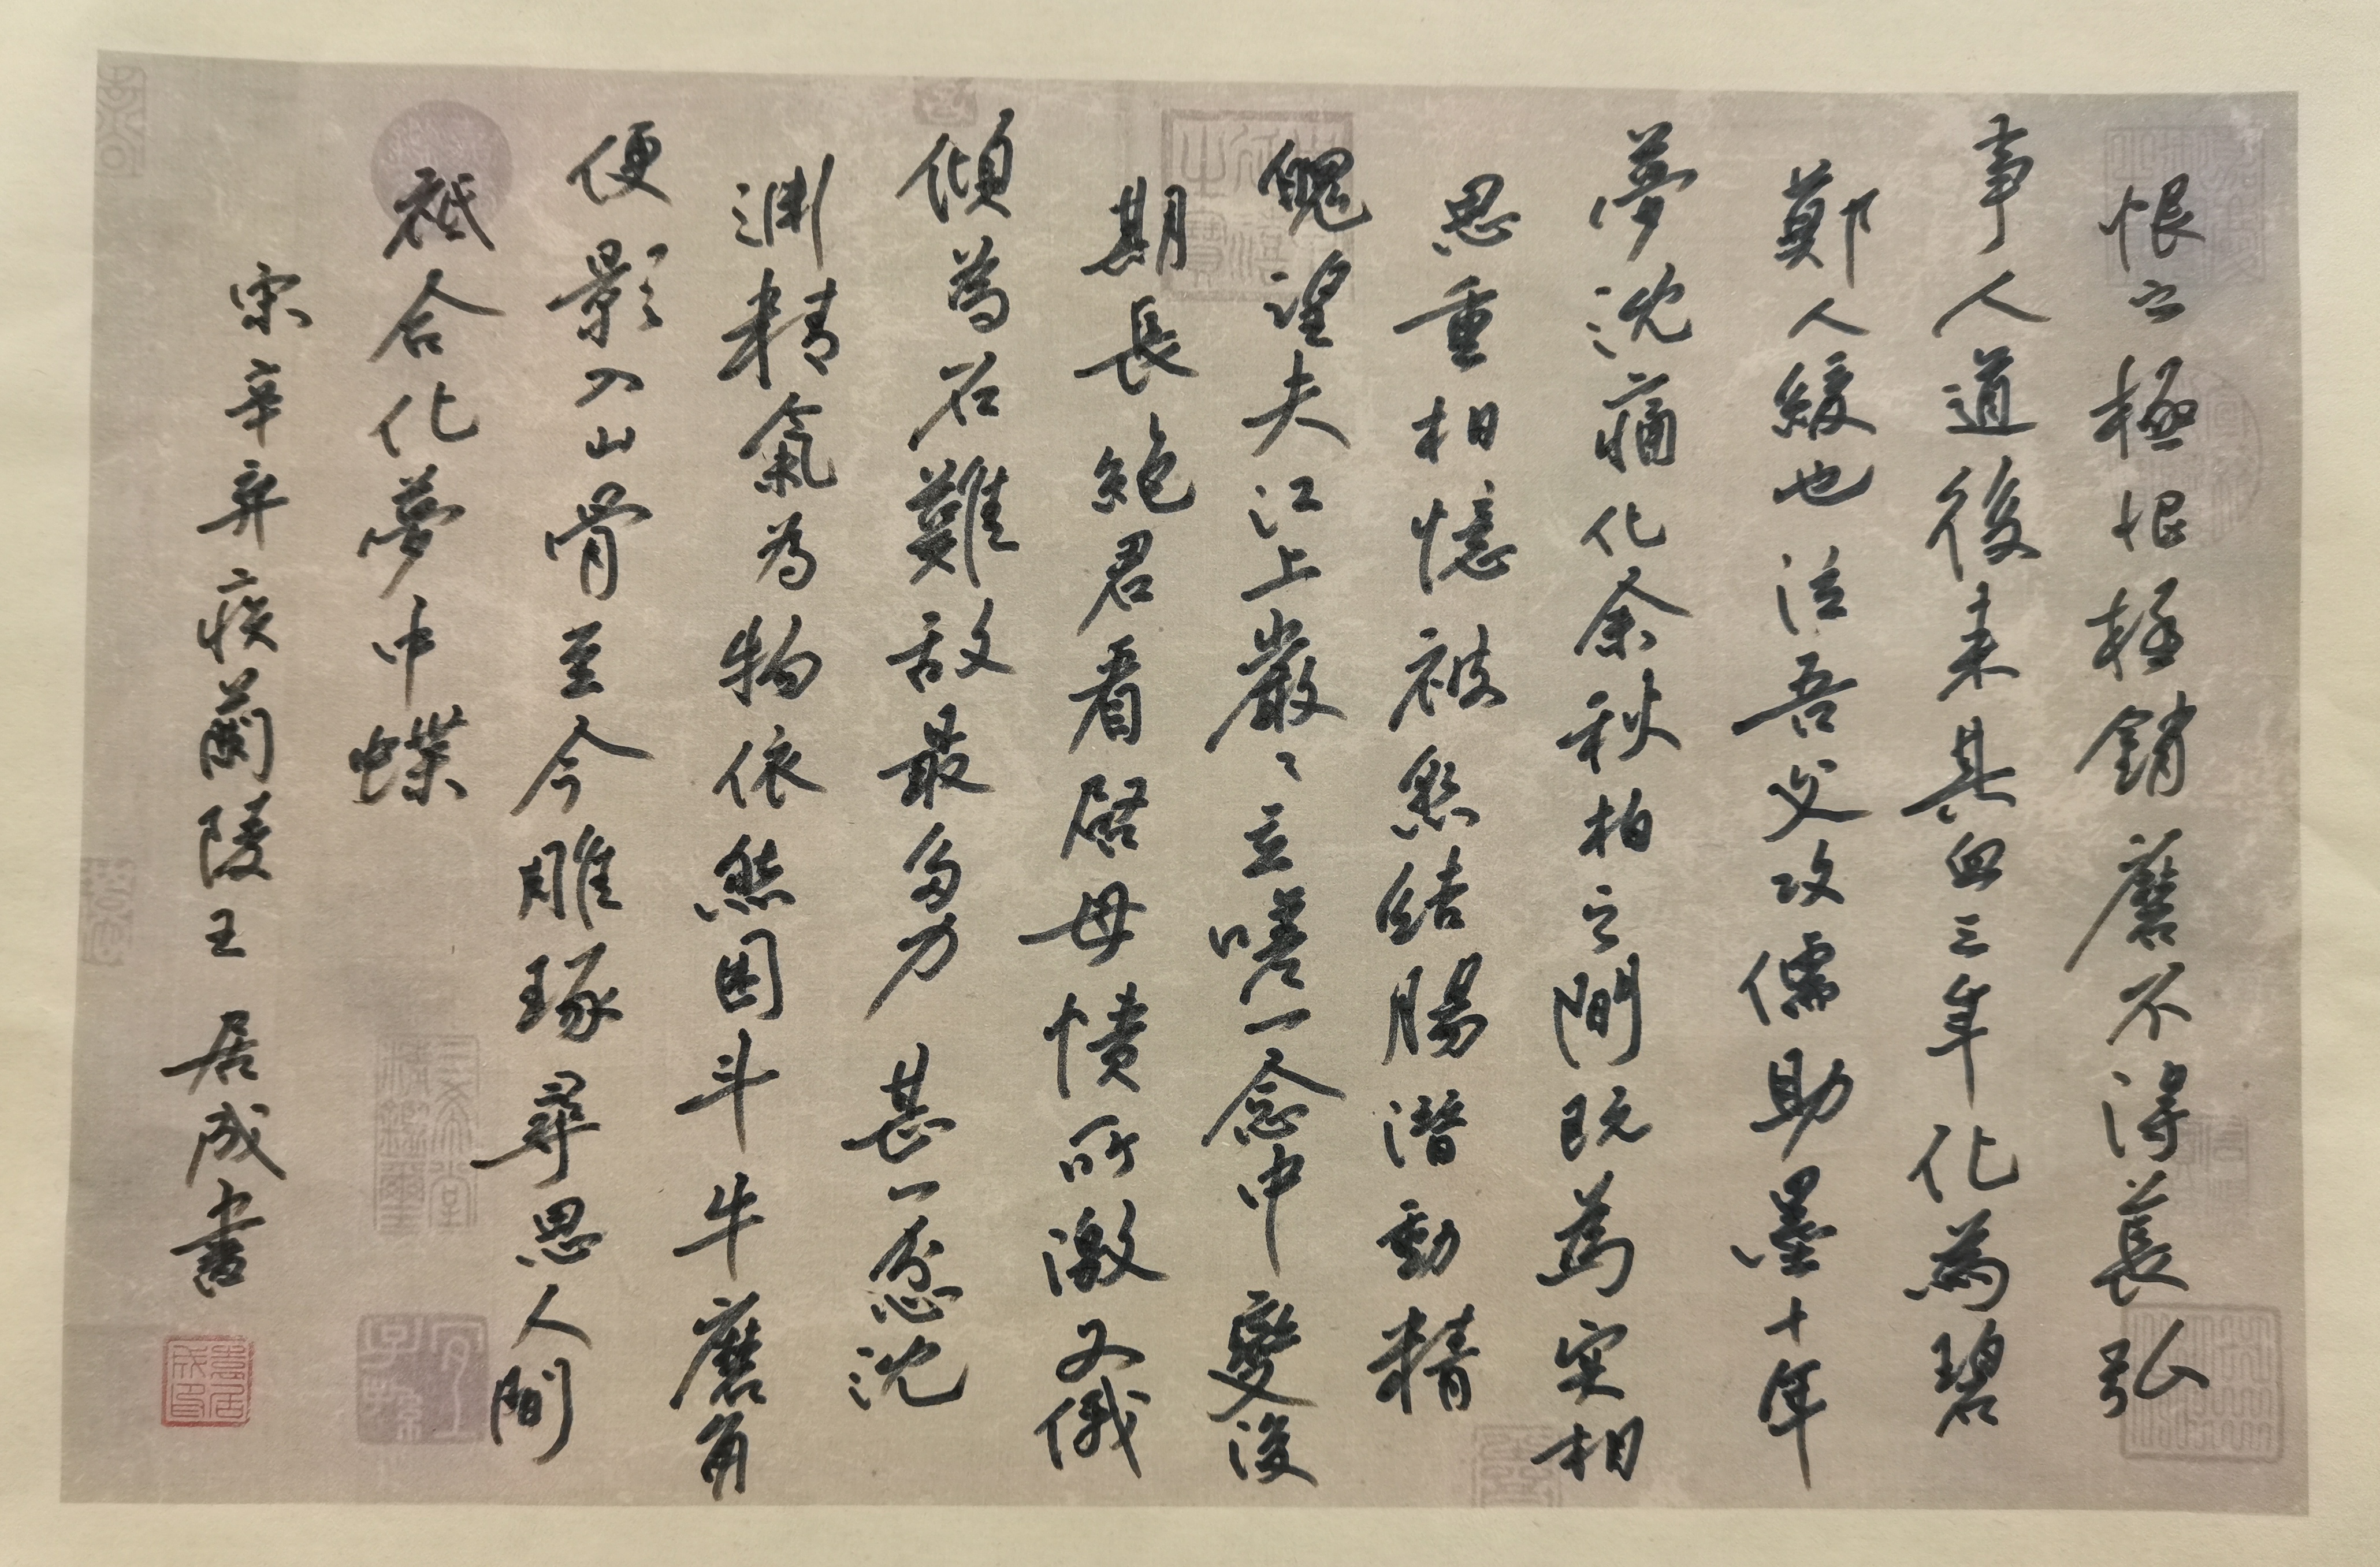 恨之極恨極銷磨不得萇弘
事人道後来其血三年化為碧
鄭人緩也泣吾父攻儒助墨十年
夢沈痛化余秋柏之間既為实相
思重相憶被怨結腸潛動精
魄望夫江上巖々立嗟一念中變後
期長絕君看啓母憤所激又俄
傾為石難敵最多力甚一忿沈
淵精氣为物依然困斗牛磨角
便影入山骨至今雕琢尋思人間
祇合化夢中蝶
宋辛弃疾蘭陵王 居成書
三希堂精鑑璽
宜子孫